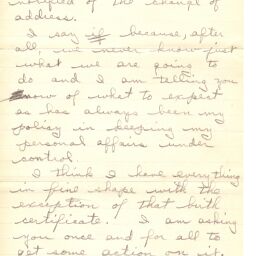 notified of the change of
address.
I say if because, after
all, we never know just
what we are going to
do and I am telling you
now of what to expect
as has always been my
policy in keeping my
personal affairs under
control.
I think I have everything
in fine shape with the
exception of that birth
certificate. I am asking
you once and for all to
get some action on it.